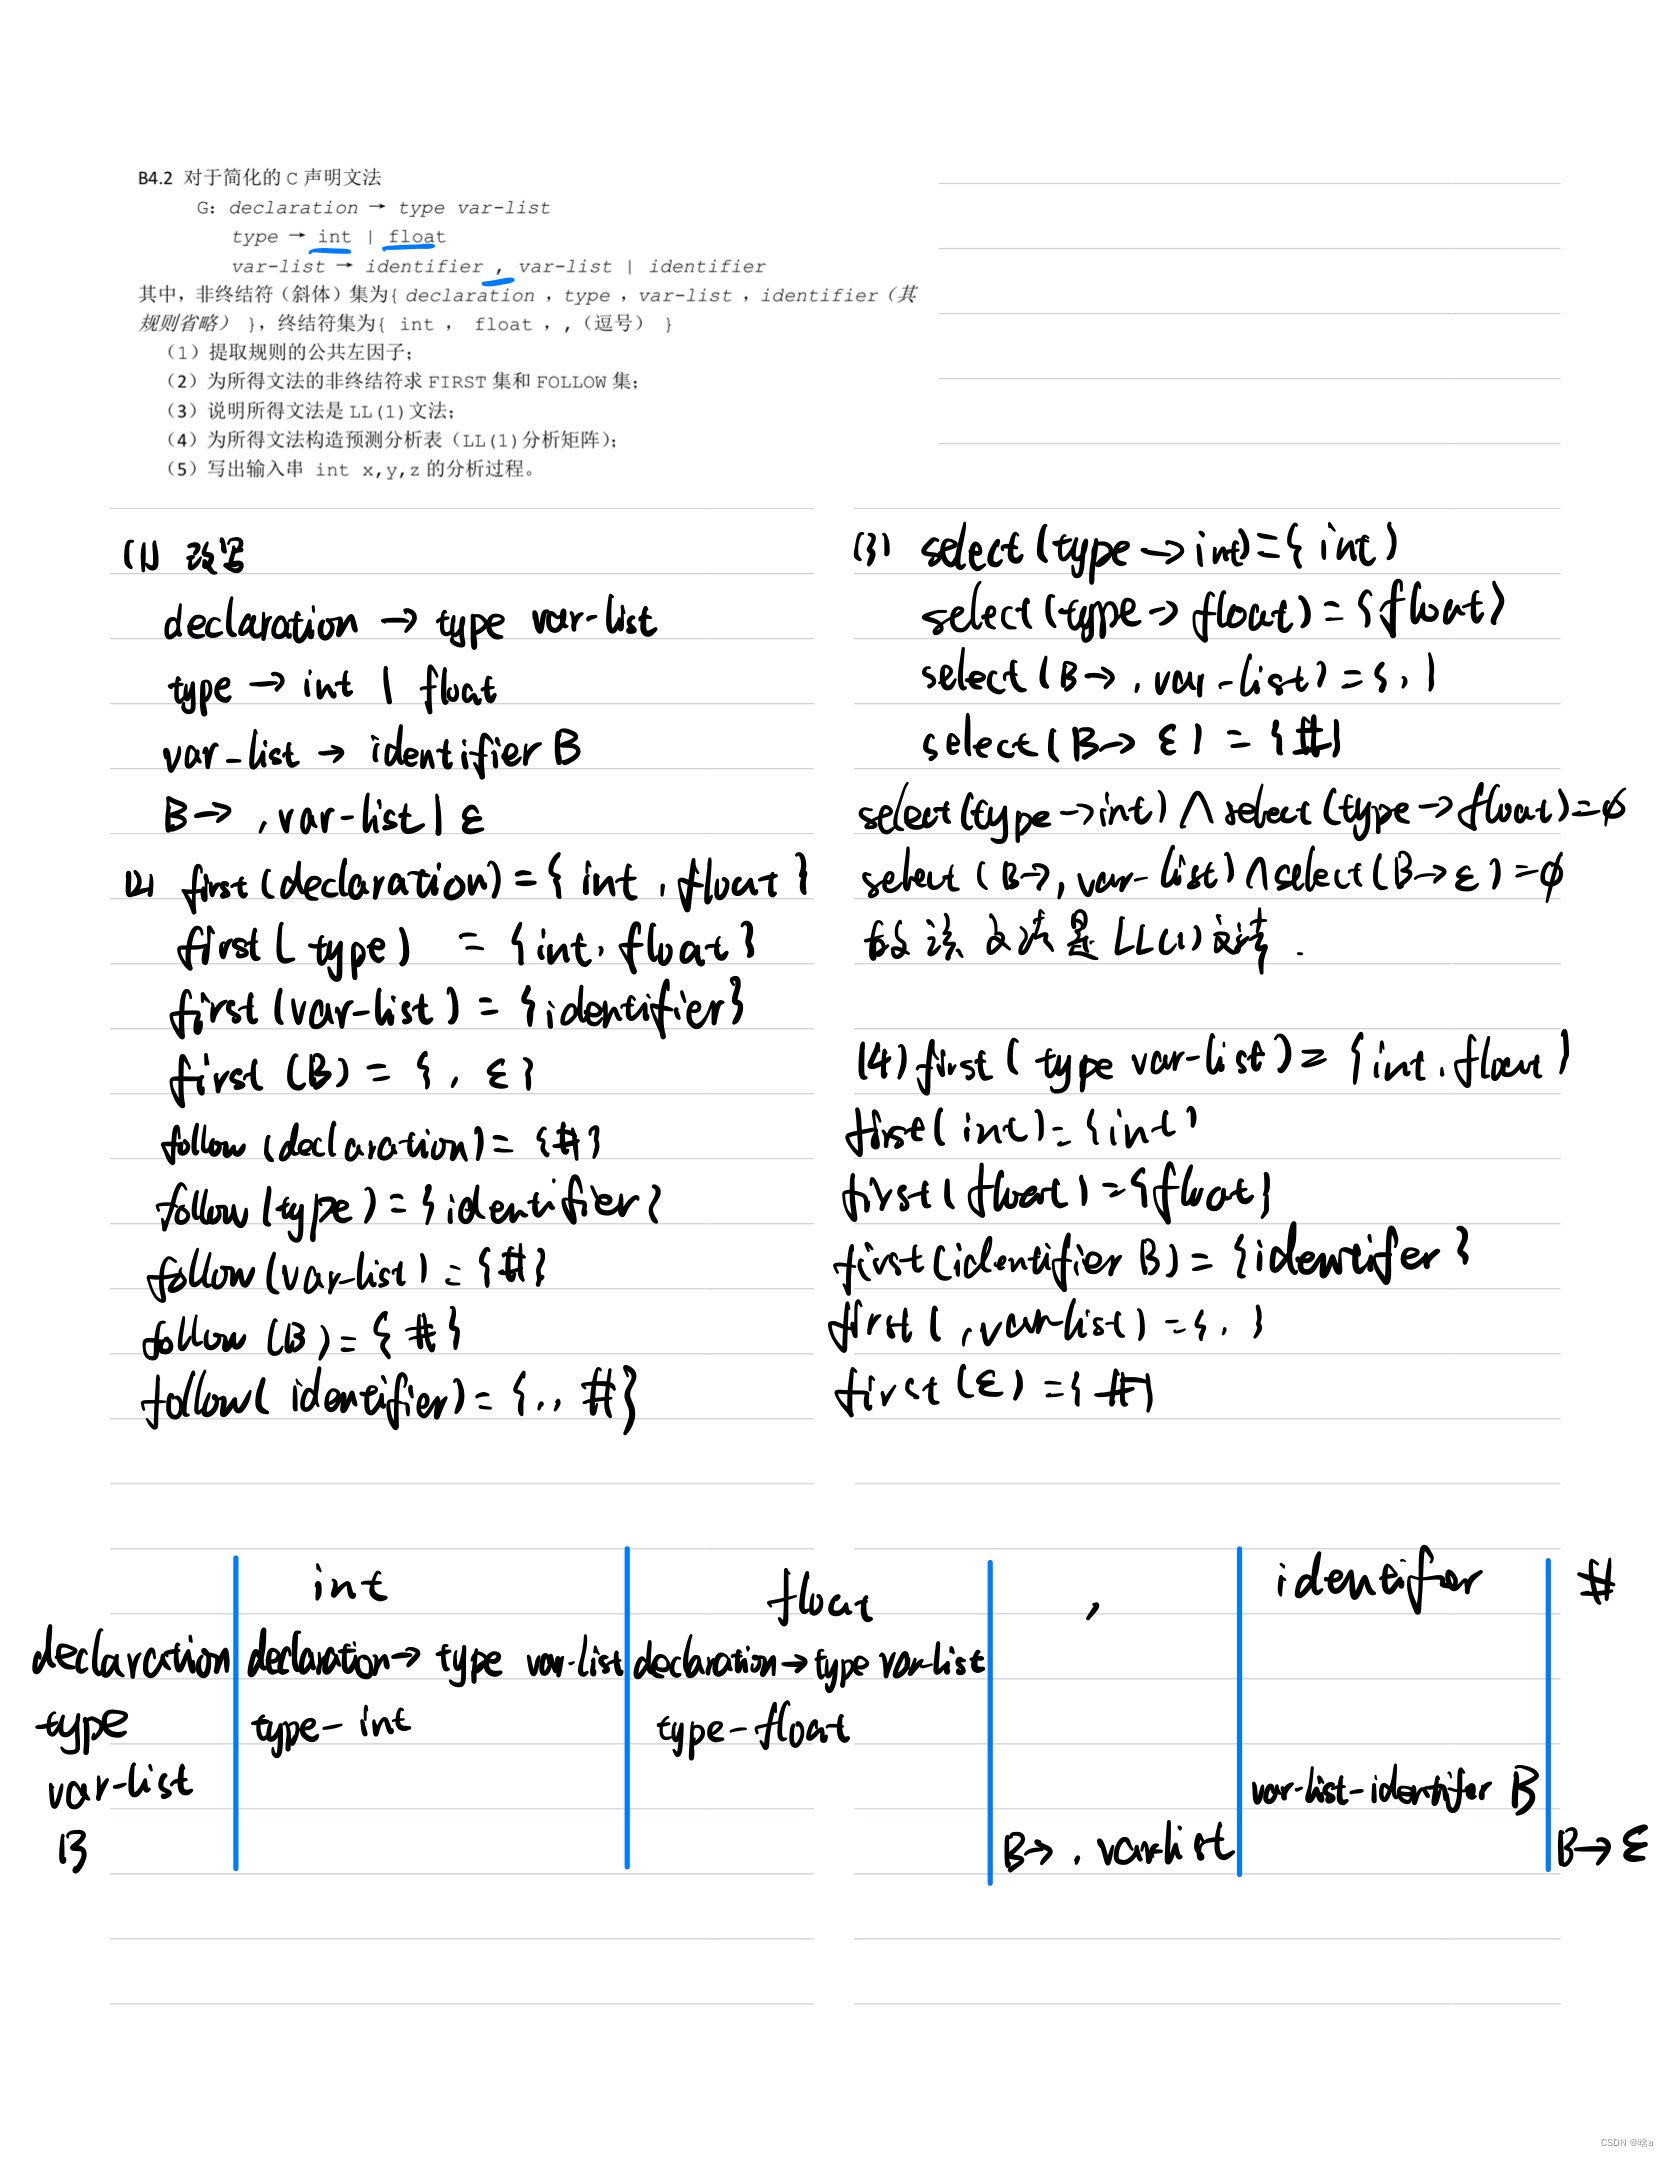 B4.2 对于简化的 C 声明文法
G: declaration → type var-list
type → int | float
var-list → identifier , var-list | identifier
其中，非终结符（斜体）集为{ declaration , type , var-list , identifier（其
规则省略） }，终结符集为{ int , float , ,（逗号） }
（1）提取规则的公共左因子；
（2）为所得文法的非终结符求 FIRST 集和 FOLLOW 集；
（3）说明所得文法是 LL(1)文法；
（4）为所得文法构造预测分析表（LL(1)分析矩阵）；
（5）写出输入串 int x,y,z 的分析过程。
(1) 改写
declaration → type var-list
type → int | float
var-list → identifier B
B → , var-list | ε
(2) first (declaration) = { int , float }
first ( type ) = { int, float }
first (var-list ) = { identifier}
first (B) = { , ε }
follow (declaration) = {#}
follow (type ) = { identifier }
follow (var-list ) = {#}
follow (B) = { # }
follow( identifier) = { , , #}
(3) select (type → int) = { int }
select (type → float) = {float}
select ( B → , var-list ) = { , }
select ( B → ε ) = {#}
select (type → int) ∧ select (type → float) = ∅
select ( B →, var-list ) ∧ select ( B → ε ) = ∅
故该文法是 LL(1)文法.
(4) first ( type var-list ) = {int, float }
first ( int ) = {int }
first ( float ) = {float}
first (identifier B) = {identifer }
first ( , var-list ) = { , }
first (ε) = { # }
int float , identifer #
declaration declaration → type var-list declaration → type var-list
type type - int type - float
var-list var-list - identifer B
B B → , var-list B → ε
CSDN @啥a